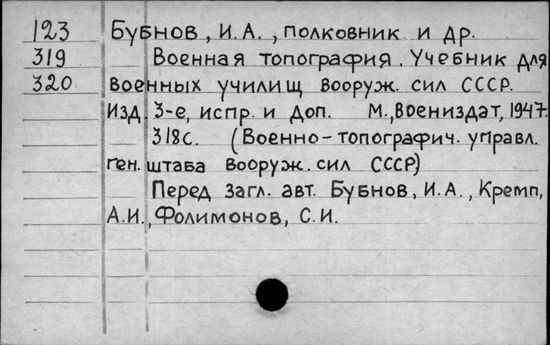 123 Бубнов, И.А., полковник и др.
319 Военная топография. Учебник для
320 военных училищ вооруж. сил СССР.
Изд. 3-е, испр. и доп. М., Воениздат, 1947.
318с. (Военно-топографич. управл.
ген. штаба вооруж. сил СССР)
Перед загл. авт. Бубнов, И.А., Кремп,
А.И., Фолимонов, С.И.